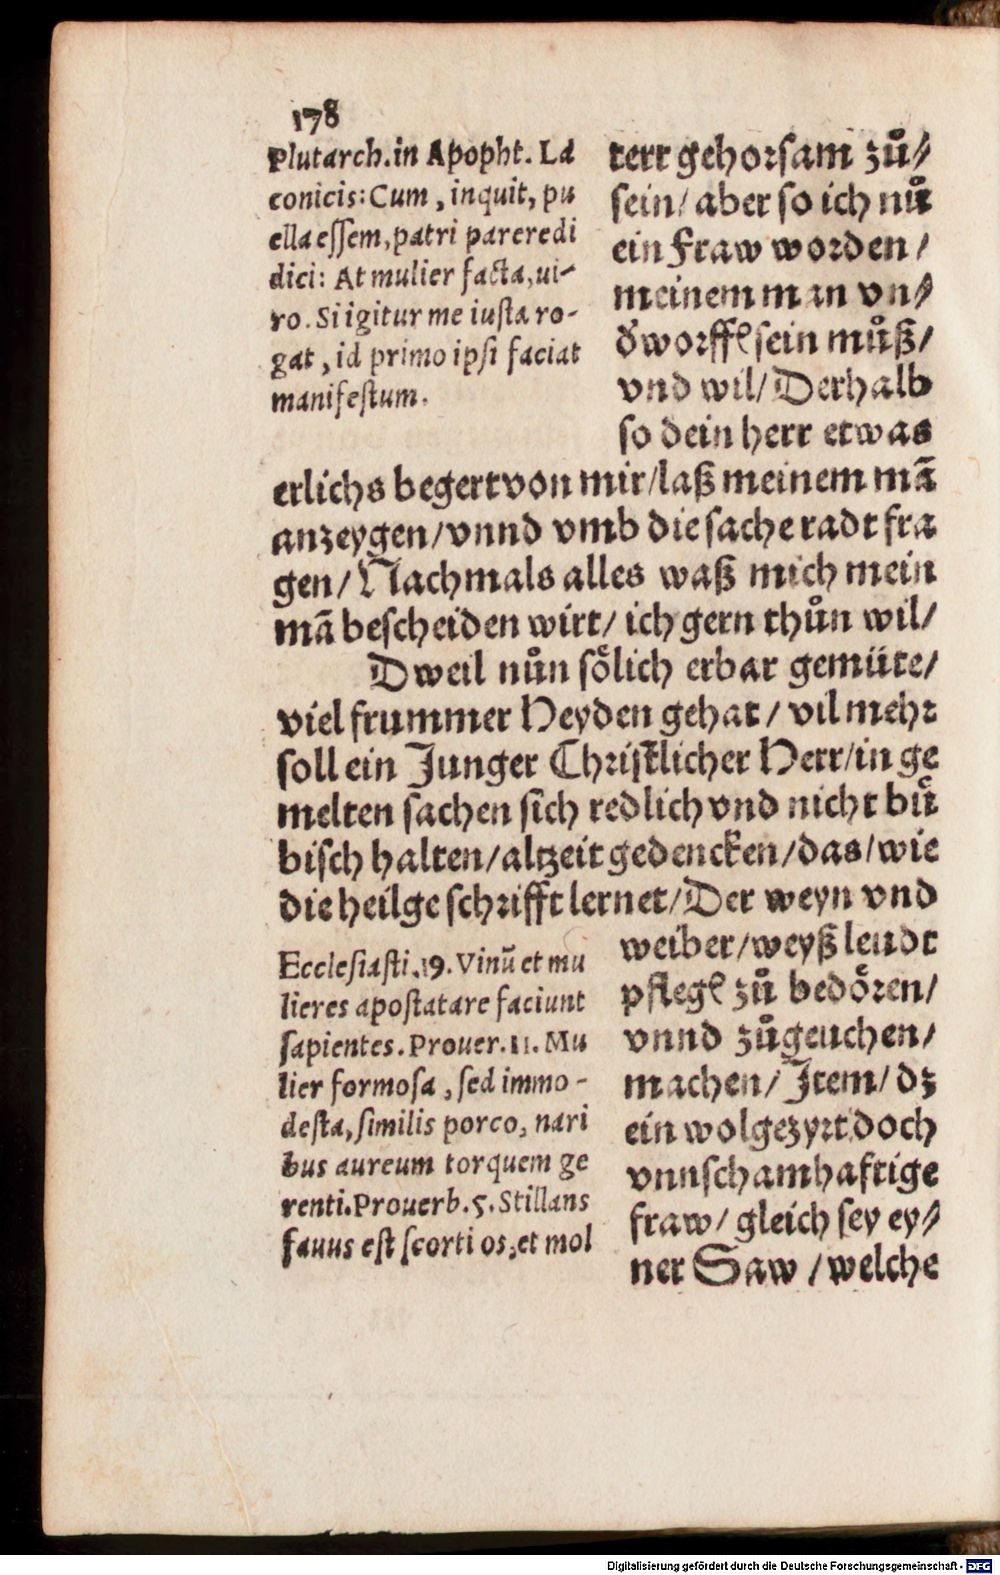 178
Plutarch.in Apopht. La
conicis: Cum, inquit, pu
ella essem, patri parere di
dici: At mulier facta, ui-
ro. Si igitur me iusta ro-
gat, id primo ipsi faciat
manifestum.
terr gehorsam zů⸗
sein/ aber so ich nů
ein Fraw worden/
meinem man vn⸗
d'worffẽ sein můß/
vnd wil/ Derhalb
so dein herr etwas
erlichs begert von mir/laß meinem mã
anzeygen/vnnd vmb die sache radt fra
gen/ Nachmals alles waß mich mein
mã bescheiden wirt/ ich gern thůn wil/
Dweil nůn sôlich erbar gemüte/
viel frummer Heyden gehat/ vil mehr
soll ein Junger Christlicher Herr/in ge
melten sachen sich redlich vnd nicht bü
bisch halten/altzeit gedencken/das/wie
die heilge schrifft lernet/Der weyn vnd
Ecclesiasti.19. Vinũ et mu
lieres apostatare faciunt
sapientes. Prouer. 11. Mu
lier formosa, sed immo-
desta, similis porco, nari
bus aureum torquem ge
renti. Prouerb. 5. Stillans
fauus est scorti os, et mol
weiber/weyß leudt
pflegẽ zů bedôren/
vnnd zůgeuchen/
machen/ Item/ dz
ein wolgezyrt doch
vnnschamhaftige
fraw/ gleich sey ey⸗
ner Saw/welche
Digitalisierung gefördert durch die Deutsche Forschungsgemeinschaft - DFG